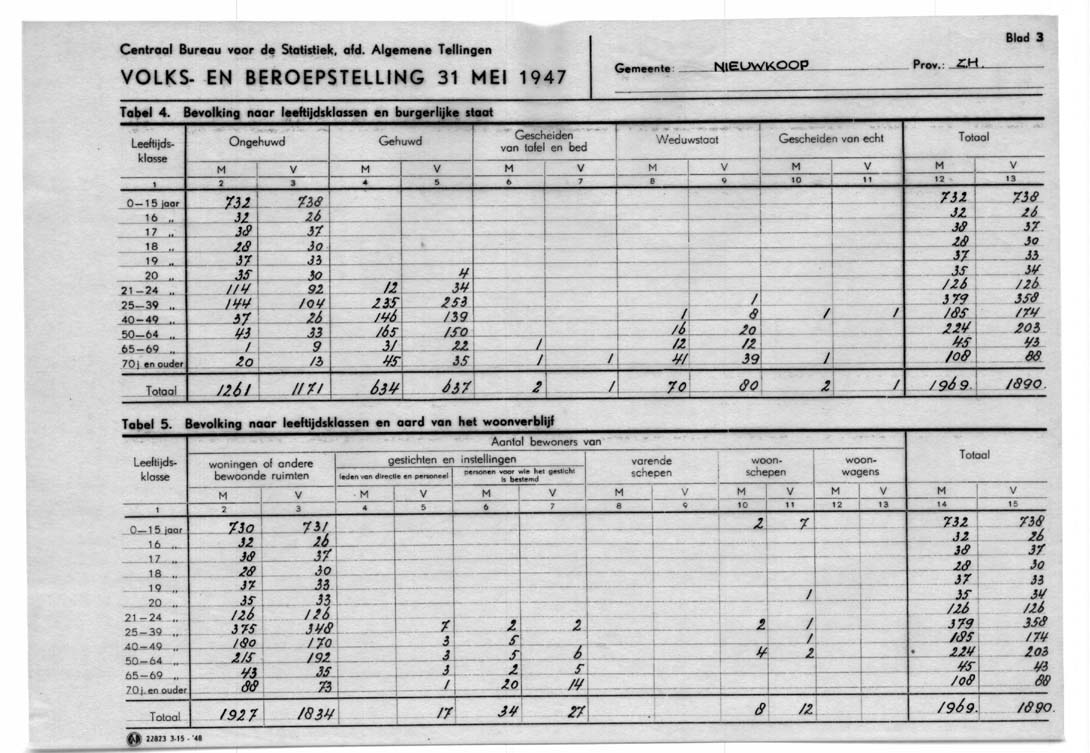 Blad 3
Centraal Bureau voor de Statistiek, afd. Algemene Tellingen
VOLKS- EN BEROEPSTELLING 31 MEI 1947
Gemeente: NIEUWKOOP Prov.: Z.H.
Tabel 4. Bevolking naar leeftijdsklassen en burgerlijke staat
Leeftijds-klasse Ongehuwd Gehuwd Gescheiden van tafel en bed Weduwstaat Gescheiden van echt Totaal
M V M V M V M V M V M V
1 2 3 4 5 6 7 8 9 10 11 12 13
0—15 jaar 732 738 732 738
16 „ 32 26 32 26
17 „ 38 37 38 37
18 „ 28 30 28 30
19 „ 37 33 37 33
20 „ 35 30 4 35 34
21—24 „ 114 92 12 34 126 126
25—39 „ 144 104 235 253 1 379 358
40—49 „ 37 26 146 139 1 8 1 1 185 174
50—64 „ 43 33 165 150 16 20 224 203
65—69 „ 1 9 31 22 1 12 12 45 43
70 j. en ouder 20 13 45 35 1 1 41 39 1 108 88
Totaal 1261 1171 634 637 2 1 70 80 2 1 1969. 1890.
Tabel 5. Bevolking naar leeftijdsklassen en aard van het woonverblijf
Leeftijds-klasse Aantal bewoners van Totaal
woningen of andere bewoonde ruimten gestichten en instellingen varende schepen woon-schepen woon-wagens
leden van directie en personeel personen voor wie het gesticht is bestemd
M V M V M V M V M V M V M V
1 2 3 4 5 6 7 8 9 10 11 12 13 14 15
0—15 jaar 730 731 2 7 732 738
16 „ 32 26 32 26
17 „ 38 37 38 37
18 „ 28 30 28 30
19 „ 37 33 37 33
20 „ 35 33 1 35 34
21—24 „ 126 126 126 126
25—39 „ 375 348 7 2 2 2 1 379 358
40—49 „ 180 170 3 5 1 185 174
50—64 „ 215 192 3 5 6 4 2 224 203
65—69 „ 43 35 3 2 5 45 43
70 j. en ouder 88 73 1 20 14 108 88
Totaal 1927 1834 17 34 27 8 12 1969. 1890.
22823 3-15 - '48